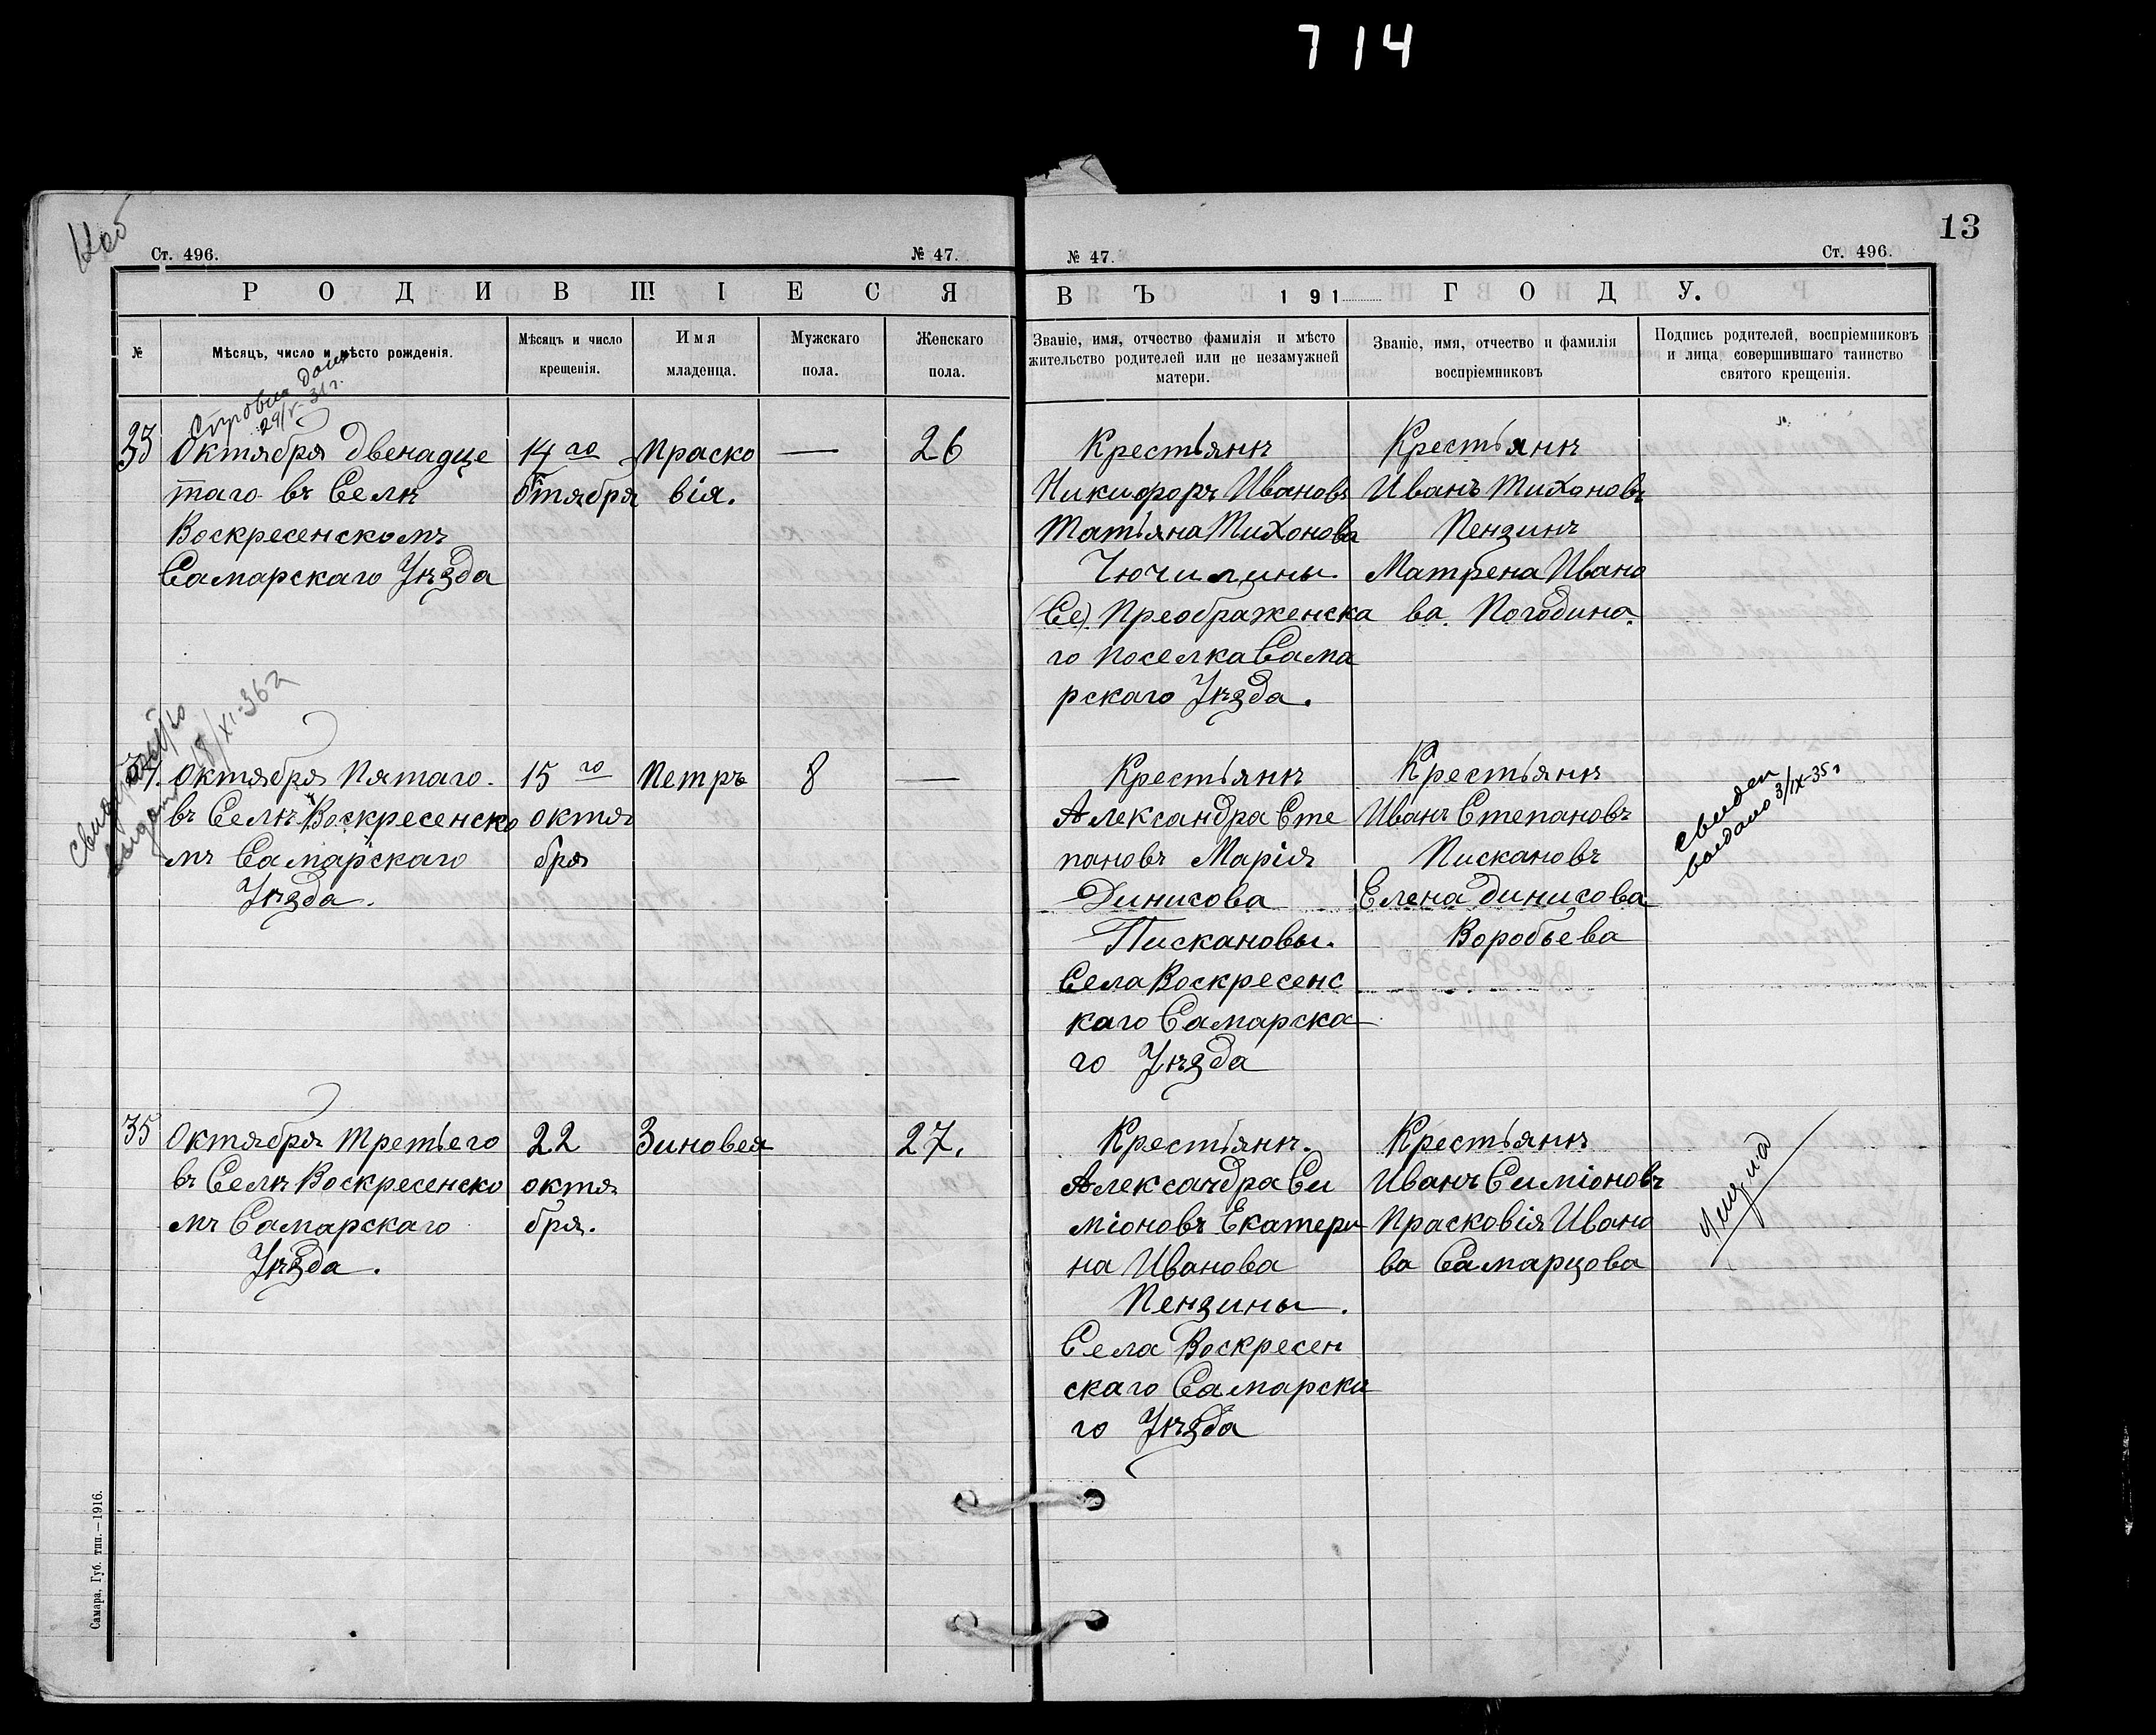 714
13
Ст. 496.
№ 47.
№ 47.
Ст. 496.
РОДИВШІЕСЯ
ВЪ 191 ГОДУ.
№
Мѣсяцъ, число и мѣсто рожденія.
Мѣсяцъ и число
крещенія.
Имя
младенца.
Мужскаго
пола.
Женскаго
пола.
Званіе, имя, отчество фамилія и мѣсто
жительство родителей или не незамужней
матери.
Званіе, имя, отчество и фамилія
воспріемниковъ
Подпись родителей, воспріемниковъ
и лица совершившаго таинство
святого крещенія.
29/V-31г.
33
Октября двенадце
таго въ Селѣ
Воскресенскомъ
Самарскаго Уѣзда
14 го
Октября
Праско
вія.
—
26
Крестьянъ
Никифоръ Ивановъ
Татьяна Тихонова
Тючилины.
(Се) Преображенска
го поселка Сама
рскаго Уѣзда.
Крестьянъ
Иванъ Тихоновъ
Пензинъ
Матрена Ивано
ва. Погодина.
18/XI-36г
Октября Пятаго.
въ Селѣ Воскресенско
мъ Самарскаго
Уѣзда.
15 го
октя
бря
Петръ
8
—
Крестьянъ
Александра Сте
пановъ Марія
Динисова
Пискановы.
Села Воскресенс
каго Самарска
го Уѣзда
Крестьянъ
Иванъ Степановъ
Пискановъ
Елена Динисова
Воробьева
свиден
выдано 3/IX-35г
35
Октября Третьего
въ Селѣ Воскресенско
мъ Самарскаго
Уѣзда.
22
октя
бря.
Зиновея
27.
Крестьянъ.
Александра Си
міоновъ Екатери
на Иванова
Пензины.
Села Воскресен
скаго Самарска
го Уѣзда
Крестьянъ
Иванъ Симіоновъ
Прасковія Ивано
ва Самарцова
Самара, Губ. тип.—1916.